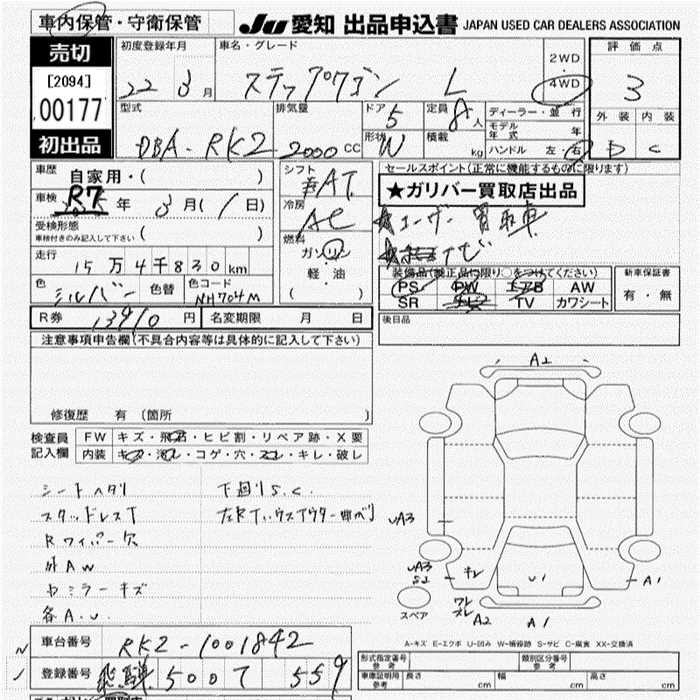 車内保管・守衛保管
JU 愛知 出品申込書 JAPAN USED CAR DEALERS ASSOCIATION
売切
[2094]
00177
初出品
初度登録年月
22年 3月
車名・グレード
ステップワゴン L
2WD
4WD
評価点
3
外装 内装
D C
型式
DBA-RK2
排気量
2000 CC
ドア
5
定員
8人
形状
W
積載
kg
ディーラー・並行
モデル年式 年
ハンドル 左・右
車歴
自家用・( )
車検
R7 年 3月(1日)
受検形態
車検付きのみ記入して下さい
( )
走行
15万4千830km
色
シルバー
色替
色コード
NH704M
シフト
AT
冷房
AC
燃料
ガソリン
軽油
(・)
セールスポイント(正常に機能するものに限ります)
★ガリバー買取店出品
★ユーザー買取車
装備品(純正品に限り○をつけてください)
PS PW エアB AW
SR TV カワシート
新車保証書
有・無
後日品
R券 13910円
名変期限 月 日
注意事項申告欄(不具合内容等は具体的に記入して下さい)
修復歴 有(箇所 )
検査員記入欄
FW キズ・飛石・ヒビ割・リペア跡・X要
内装 キズ・汚レ・コゲ・穴・スレ・キレ・破レ
シートヘタリ
スタッドレスT
Rワイパー欠
外AW
ミラーキズ
各A.U.
下廻りS.C.
A2
UA3
UA3
S2
キレ
U1
A1
スペア
ワレ
スレ
A2
A1
A-キズ E-エクボ U-凹み W-補修跡 S-サビ C-腐食 XX-交換済
車台番号
RK2-1001842
登録番号
飛騨 500 て 559
形式指定番号
参考
類別区分番号
参考
車庫証明用
参考
長さ cm 幅 cm 高さ cm